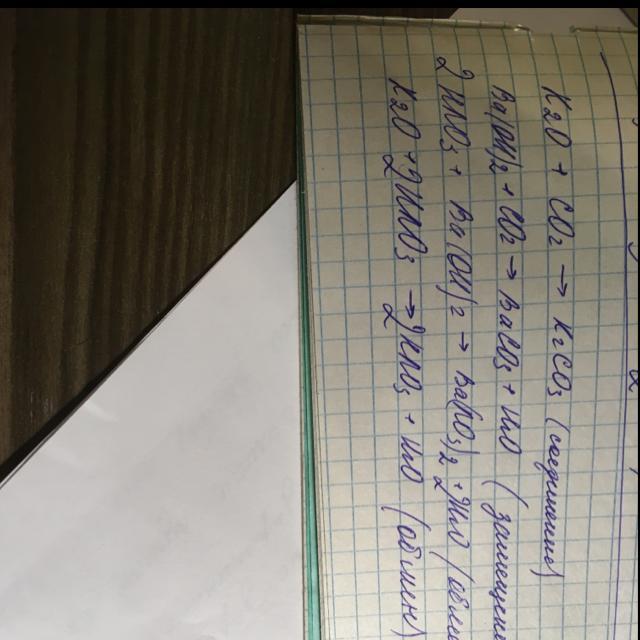 K2O + CO2 → K2CO3 (соединение)
Ba(OH)2 + CO2 → BaCO3 + H2O (замещени
2 HNO3 + Ba(OH)2 → Ba(NO3)2 + 2H2O (обмен
K2O + 2HNO3 → 2KNO3 + H2O (обмен)